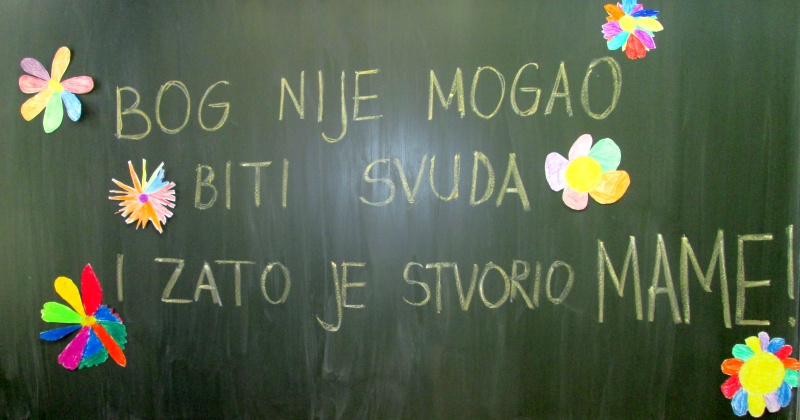 BOG NIJE MOGAO
BITI SVUDA
I ZATO JE STVORIO MAME!